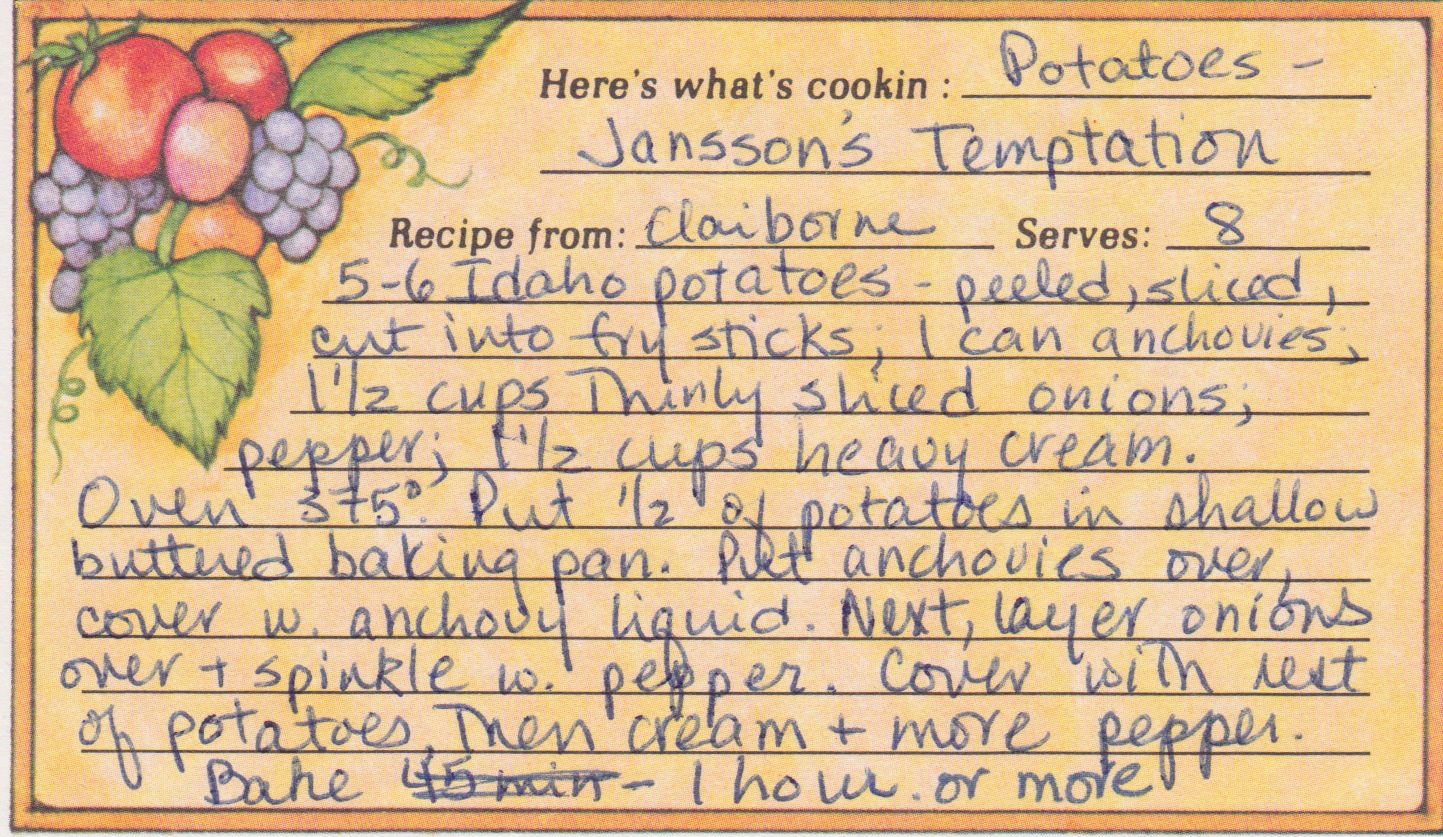 Here's what's cookin : Potatoes -
Jansson's Temptation
Recipe from: Claiborne Serves: 8
5-6 Idaho potatoes - peeled, sliced,
cut into fry sticks; 1 can anchovies;
1 1/2 cups Thinly sliced onions;
pepper; 1 1/2 cups heavy cream.
Oven 375°. Put 1/2 of potatoes in shallow
buttered baking pan. Put anchovies over,
cover w. anchovy liquid. Next, layer onions
over + spinkle w. pepper. Cover with rest
of potatoes, Then cream + more pepper.
Bake 45 min - 1 hour. or more